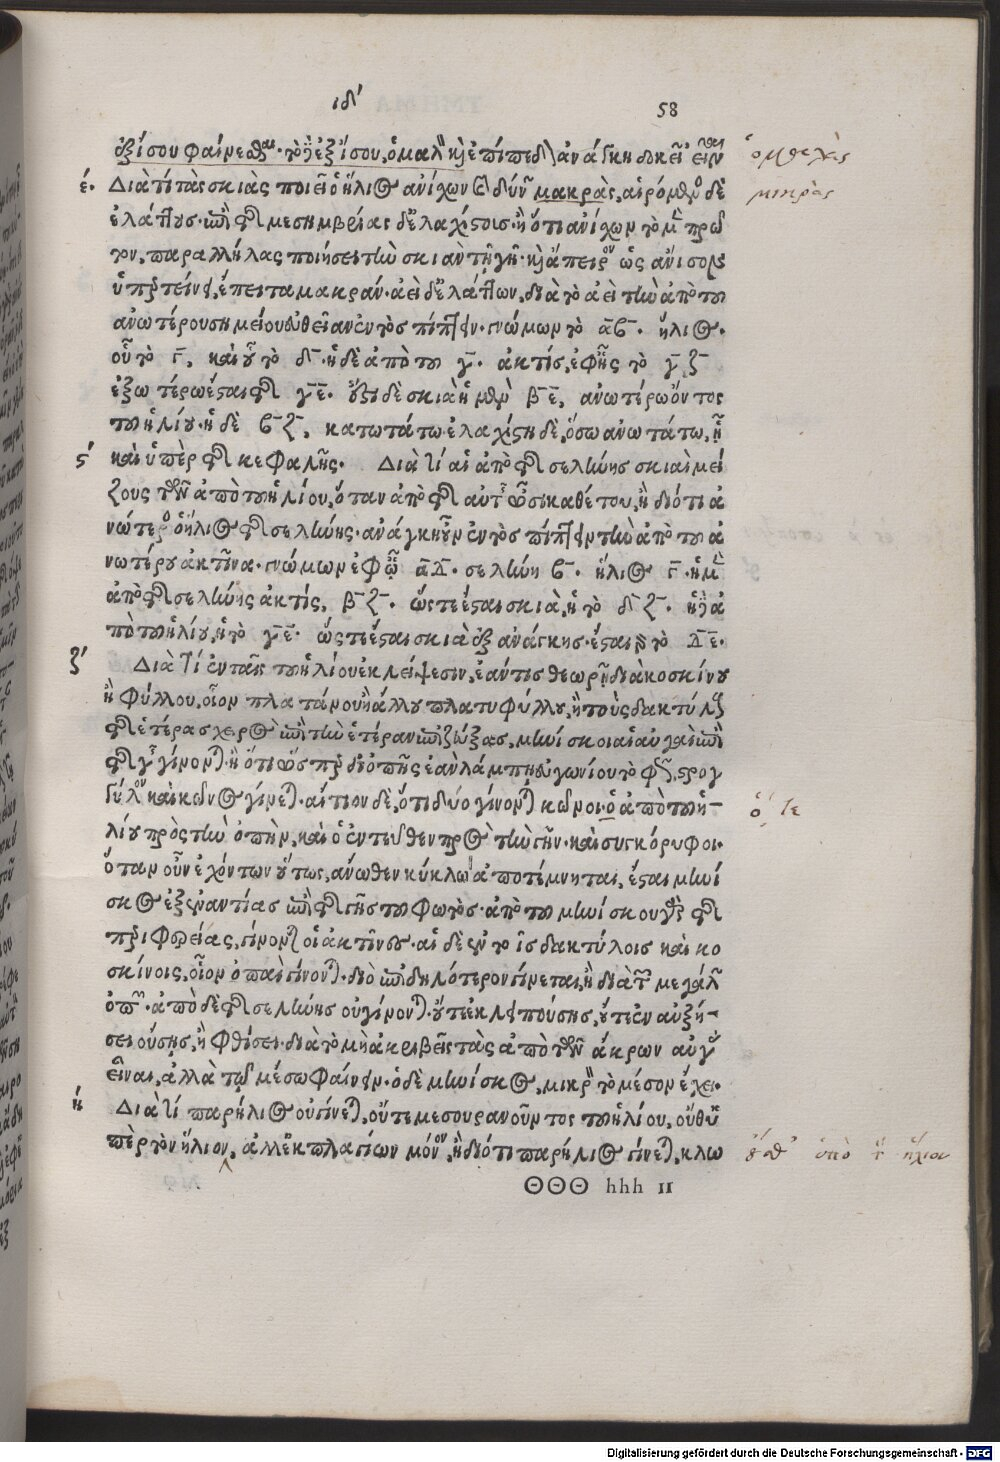 ιδʹ 58
ἐξ ἴσου φαίνεσθαι. τὸ δὲ ἐξ ἴσου, ὁμαλὸν καὶ ἐπίπεδον ἀνάγκη δοκεῖ εἶναι
ὁμαλὲς
έ. Διὰ τί τὰς σκιὰς ποιεῖ ὁ ἥλιος ἀνίχων καὶ δύνων μακρὰς, αἰρόμενος δὲ
μικρὰς
ἐλάττους. ἐπὶ τῆς μεσημβρίας δ' ἐλαχίστας. ἢ ὅτι ἀνίχων τὸ μὲν πρῶ
τον, παραλλήλας ποιήσει τὴν σκιὰν τῇ γῇ. καὶ ἄπειρον ὡς ἄνισον
ὑπερτείνει, ἔπειτα μακράν. ἀεὶ δ' ἐλάττων, διὰ τὸ ἀεὶ τὴν ἀπὸ τοῦ
ἀνωτέρου σημείου εὐθεῖαν ἐντὸς πίπτειν. γνώμων τὸ ᾱβ̄. ἥλιος.
οὗ τὸ γ̄, καὶ οὗ τὸ δ̄. ἡ δὲ ἀπὸ τοῦ γ̄. ἀκτίς, ἐφ' ἧς τὸ γ̄ ζ̄
ἐξωτέρω ἔσται τῆς γ̄ε̄. ἔστι δὲ σκιὰ ἡ μὲν β̄ε̄, ἀνωτέρω ὄντος
τοῦ ἡλίου. ἡ δὲ β̄ζ̄, κατωτάτω. ἐλαχίστη δὲ, ὅσω ἀνωτάτω, ἢ
ςʹ καὶ ὑπὲρ τῆς κεφαλῆς. Διὰ τί αἱ ἀπὸ τῆς σελήνης σκιαὶ μεί
ζους τῶν ἀπὸ τοῦ ἡλίου, ὅταν ἀπὸ τῆς αὐτῆς ὦσι καθέτου, ἢ διότι ἀ
νώτερον ὁ ἥλιος τῆς σελήνης. ἀνάγκη οὖν ἐντὸς πίπτειν τὴν ἀπὸ τοῦ ἀ
νωτέρου ἀκτῖνα. γνώμων ἐφ' ᾧ ᾱδ̄. σελήνη β̄. ἥλιος γ̄. ἡ μὲν
ἀπὸ τῆς σελήνης ἀκτίς, β̄ζ̄. ὥστε ἔσται σκιὰ, ἡ τὸ δ̄ζ̄. ἡ δὲ ἀ
πὸ τοῦ ἡλίου, ἡ τὸ γ̄ε̄. ὥστε ἔσται σκιὰ ἐξ ἀνάγκης. ἔσται γὰρ τὸ δ̄ε̄.
ζʹ Διὰ τί ἐν ταῖς τοῦ ἡλίου ἐκλείψεσιν, ἐάν τις θεωρῇ διὰ κοσκίνου
ἢ φύλλου, οἷον πλατάνου ἢ ἄλλου πλατυφύλλου, ἢ τοὺς δακτύλους
τῆς ἑτέρας χειρὸς ἐπὶ τὴν ἑτέραν ἐπιζεύξας, μηνίσκοι αἱ αὐγαὶ ἐπὶ
τῆς γῆς γίνονται. ἢ ὅτι ὥσπερ δι' ὀπῆς ἐὰν λάμπῃ εὐγωνίου τὸ φῶς, στρογ
γύλον καὶ κῶνος γίνεται. αἴτιον δὲ, ὅτι δύο γίνονται κῶνοι. ὁ ἀπὸ τοῦ ἡ-
ὅ, τε
λίου πρὸς τὴν ὀπὴν, καὶ ὁ ἐντεῦθεν πρὸς τὴν γῆν. καὶ συγκόρυφοι.
ὅταν οὖν ἐχόντων οὕτως, ἄνωθεν κύκλῳ ἀποτέμνηται, ἔσται μηνί
σκος ἐξ ἐναντίας ἐπὶ τῆς γῆς τοῦ φωτός. ἀπὸ τοῦ μηνίσκου γὰρ τῆς
περιφερείας, γίνονται οἱ ἀκτῖνες. αἱ δὲ ἐν τοῖς δακτύλοις καὶ κο
σκίνοις, οἷον ὀπαὶ γίνονται. διὸ ἐπιδηλότερον γίνεται, ἢ διὰ τῶν μεγάλων
ὀπῶν. ἀπὸ δὲ τῆς σελήνης οὐ γίνονται. οὔτ' ἐκλειπούσης, οὔτ' ἐν αὐξή-
σει οὔσης, ἢ φθίσει. διὰ τὸ μὴ ἀκριβεῖς τὰς ἀπὸ τῶν ἄκρων αὐγὰς
εἶναι, ἀλλὰ τῷ μέσῳ φαίνειν. ὁ δὲ μηνίσκος, μικρὸν τὸ μέσον ἔχει.
ή Διὰ τί παρήλιος οὐ γίνεται, οὔτε μεσουρανοῦντος τοῦ ἡλίου, οὔθ' ὑ
πὲρ τὸν ἥλιον, ἀλλ' ἐκ πλαγίων μόνον, ἢ διότι παρήλιος γίνεται, κλω
οὔθ' ὑπὸ τ ἥλιον
ΘΘΘ hhh ıı
Digitalisierung gefördert durch die Deutsche Forschungsgemeinschaft - DFG